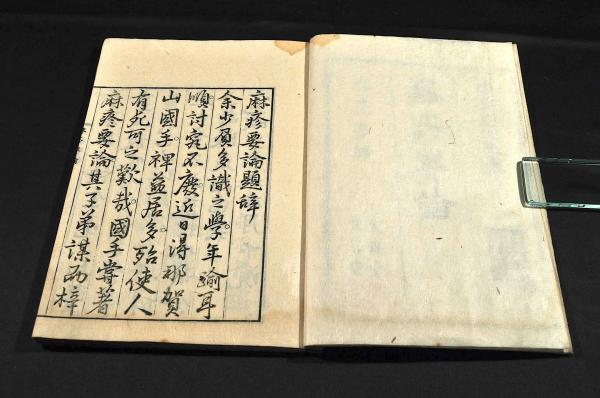 麻疹要論題辞
余少負多識之學年踰耳
順討究不廢近日得那賀
山國手裨益居多殆使人
有死可之歎哉國手嘗著
麻疹要論其子弟謀而梓